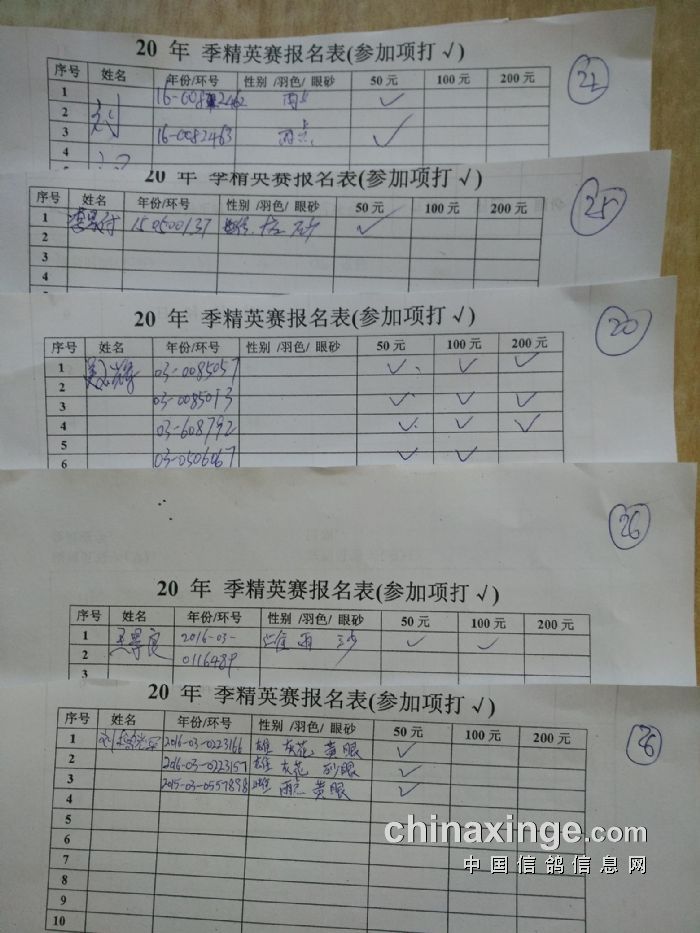 20 年 季精英赛报名表(参加项打 √)
21
序号 姓名 年份/环号 性别 /羽色/ 眼砂 50 元 100 元 200 元
1 ✓
2 刘
3 16-0082463 雨点 ✓
4
20 年 季精英赛报名表(参加项打 √)
25
序号 姓名 年份/环号 性别 /羽色/ 眼砂 50 元 100 元 200 元
1 150500137 ✓
2
3
4
20 年 季精英赛报名表(参加项打 √)
20
序号 姓名 年份/环号 性别 /羽色/ 眼砂 50 元 100 元 200 元
1 03-0085057 ✓ ✓ ✓
2
3 03-0085013 ✓ ✓ ✓
4 03-608792 ✓ ✓ ✓
5
6 03-0506067 ✓ ✓
26
20 年 季精英赛报名表(参加项打 √)
序号 姓名 年份/环号 性别 /羽色/ 眼砂 50 元 100 元 200 元
1 2016-03- 雄 雨 沙 ✓ ✓
2 0116489
3
20 年 季精英赛报名表(参加项打 √)
序号 姓名 年份/环号 性别 /羽色/ 眼砂 50 元 100 元 200 元
1 2016-03-0223166 雄 灰花 黄眼 ✓
2 2016-03-0223157 雄 灰花 砂眼 ✓
3 2015-03-0557898 雄 雨点 黄眼 ✓
4
5
6
7
8
9
10
chinaxinge.com
中国信鸽信息网